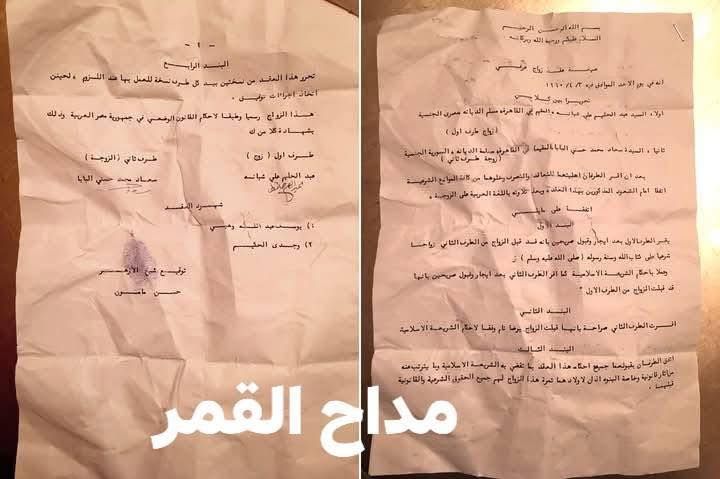 بسم الله الرحمن الرحيم
السلام عليكم ورحمة الله وبركاته
صيغة عقد زواج عرفي
انه في يوم الاحد الموافق فيه ٣/٤/١٩٦٠
تحريرا بين كلا من
اولا، السيد عبد الحليم علي شبانه المقيم في القاهرة مسلم الديانه مصري الجنسية
(زواج طرف اول)
ثانيا، السيدة سعاد محمد حسني البابا المقيمة في القاهرة مسلمة الديانه السورية الجنسية
(زوجة طرف ثاني)
بعد ان اقر الطرفان اهليتهما للتعاقد والتصرف وخلوهما من كافة الموانع الشرعية
اتفقا امام الشهود المذكورين بهذا العقد وبعد تلاوته باللغة العربية على الزوجية
اتفقنا على مايلي
البند الاول
يقر الطرف الاول بعد ايجاب وقبول صريحين بانه قد قبل الزواج من الطرف الثاني زواجا
شرعيا على كتاب الله وسنة رسوله (صلى الله عليه وسلم)
وعملا باحكام الشريعة الاسلامية كما اقر الطرف الثاني بعد ايجاب وقبول صريحين بانها
قد قبلت الزواج من الطرف الاول
البند الثاني
اقرت الطرف الثاني صراحة بانها قبلت الزواج برضا تام وفقا لاحكام الشريعة الاسلامية
البند الثالث
اتفق الطرفان بقبولهما جميع احكام هذا العقد بما تقضي به الشريعة الاسلامية وما يترتب عنه
من اثار قانونية وخاصة البنوه اذ ان لاولادهما ثمرة هذا الزواج لهم جميع الحقوق الشرعية والقانونية
قبلهما .
- ٢ -
البند الرابع
تحرر هذا العقد من نسختين بيد كل طرف نسخة للعمل بها عند اللزوم ولحين
اتخاذ اجراءات توثيق .
هذا الزواج رسميا وطبقا لاحكام القانون الوضعي في جمهورية مصر العربية وذلك
بشهادة كلا من
طرف اول (زوج) طرف ثاني (الزوجة)
عبد الحليم علي شبانه سعاد محمد حسني البابا
شهود العقد
١) يوسف عبد الله وهبي
٢) وجدي الحكيم
توقيع شيخ الازهر
حسن مامون
مداح القمر